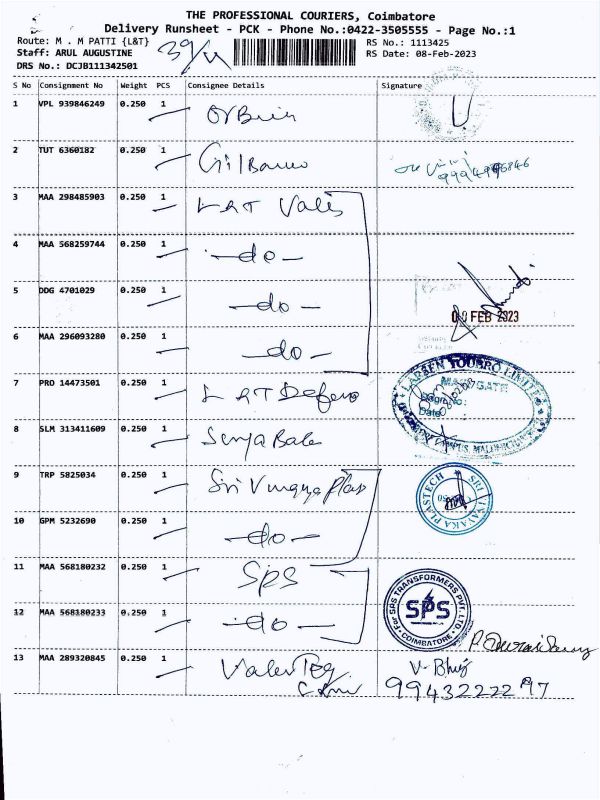 THE PROFESSIONAL COURIERS, Coimbatore
Delivery Runsheet - PCK - Phone No.:0422-3505555 - Page No.:1
Route: M . M PATTI {L&T} RS No.: 1113425
Staff: ARUL AUGUSTINE RS Date: 08-Feb-2023
DRS No.: DCJB111342501
S No Consignment No Weight PCS Consignee Details Signature
1 VPL 939846249 0.250 1
2 TUT 6360182 0.250 1
3 MAA 298485903 0.250 1 L & T Valves
4 MAA 568259744 0.250 1 -do-
5 DDG 4701029 0.250 1 -do-
09 FEB 2023
6 MAA 296093280 0.250 1 -do-
7 PRO 14473501 0.250 1 L & T Defens
LARSEN TOUBRO LIMITED
MAIN GATE
Date
8 SLM 313411609 0.250 1
9 TRP 5825034 0.250 1 Sri Vinayaga Plas
SRI VINAYAKA PLASTECH
10 GPM 5232690 0.250 1 -do-
11 MAA 568180232 0.250 1 SPS
For SPS TRANSFORMERS PVT. LTD.
SPS
COIMBATORE
12 MAA 568180233 0.250 1 -do-
13 MAA 289320845 0.250 1
9943222297